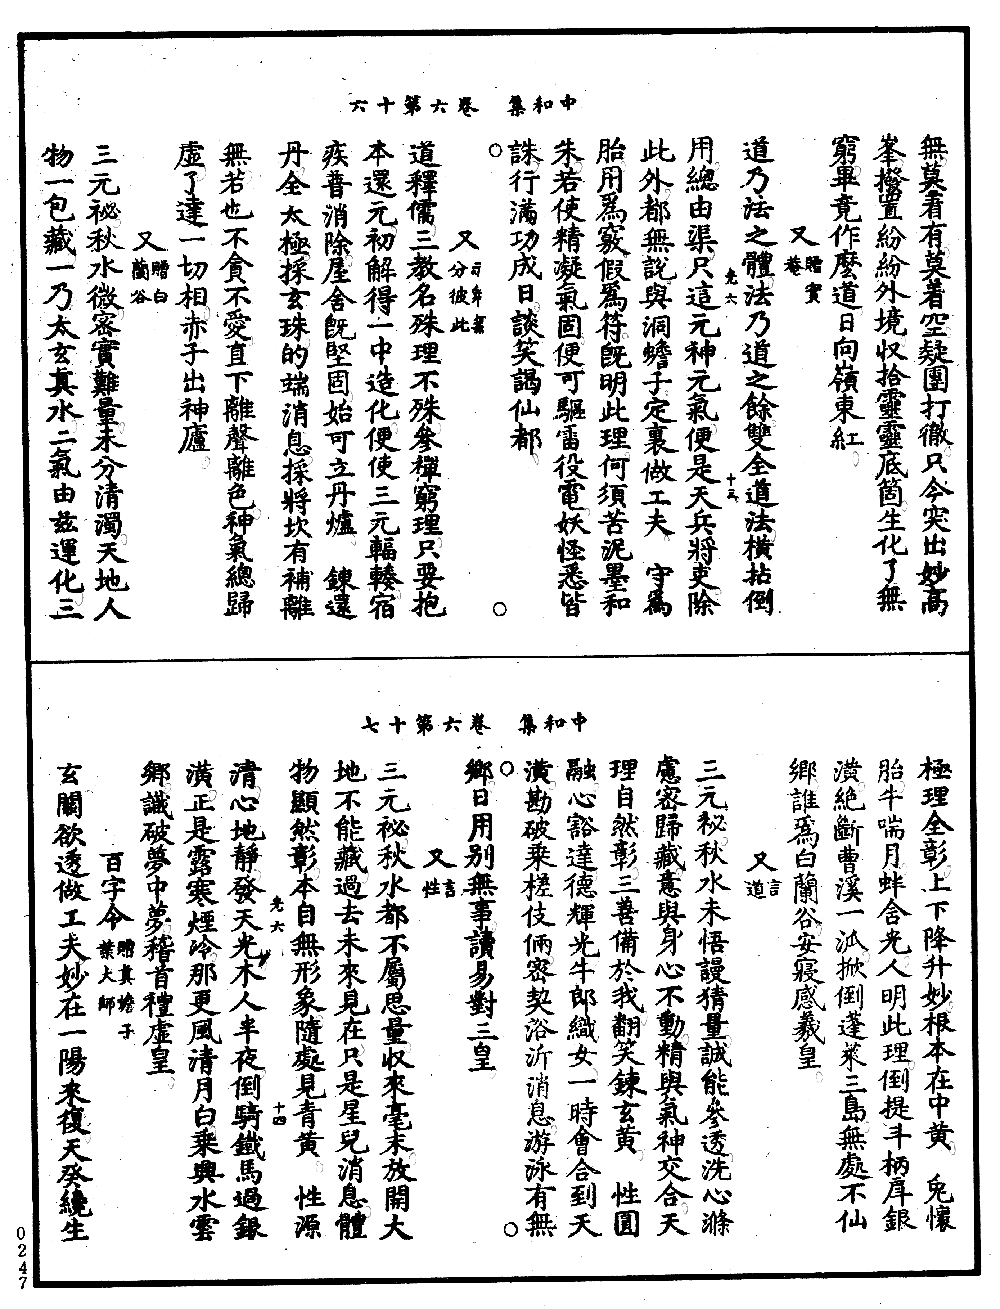 中和集 卷六第十六
無莫看有莫着空疑團打徹只今突出妙高
峯撥置紛紛外境収拾靈靈底箇生化了無
窮畢竟作麽道日向嶺東紅
又 贈實菴
道乃法之體法乃道之餘雙全道法橫拈倒
光六 十三
用總由渠只這元神元氣便是天兵將吏除
此外都無說與洞蟾子定裏做工夫 守爲
胎用爲竅假爲符旣明此理何須苦泥墨和
朱若使精凝氣固便可驅雷役電妖怪悉皆
誅行滿功成日談笑謁仙都
又 分彼此
道釋儒三教名殊理不殊參禪窮理只要抱
本還元初解得一中造化便使三元輻輳宿
疾普消除屋舍旣堅固始可立丹爐 鍊還
丹全太極採玄珠的端消息採將坎有補離
無若也不貪不愛直下離聲離色神氣總歸
虛了達一切相赤子出神廬
又 贈白蘭谷
三元祕秋水微密實難量未分清濁天地人
物一包藏一乃太玄真水二氣由茲運化三
中和集 卷六第十七
極理全彰上下降升妙根本在中黄 兔懷
胎牛喘月蚌含光人明此理倒提斗柄戽銀
潢絕斷曹溪一派掀倒蓬萊三島無處不仙
鄉誰爲白蘭谷安寢感羲皇
又 言道
三元祕秋水未悟謾猜量誠能參透洗心滌
慮密歸藏意與身心不動精與氣神交合天
理自然彰三善備於我翻笑鍊玄黄 性圓
融心豁達德輝光牛郎織女一時會合到天
潢勘破乘槎伎倆密契浴沂消息游泳有無
鄉日用别無事讀易對三皇
又 言性
三元祕秋水都不屬思量収來毫末放開大
地不能藏過去未來見在只是星兒消息體
物顯然彰本自無形象隨處見青黄 性源
光六 十四
清心地靜發天光木人半夜倒騎鐵馬過銀
潢正是露寒煙冷那更風清月白乘興水雲
鄉識破夢中夢稽首禮虛皇
百字令 贈真蟾子葉大師
玄關欲透做工夫妙在一陽來復天癸纔生
0247